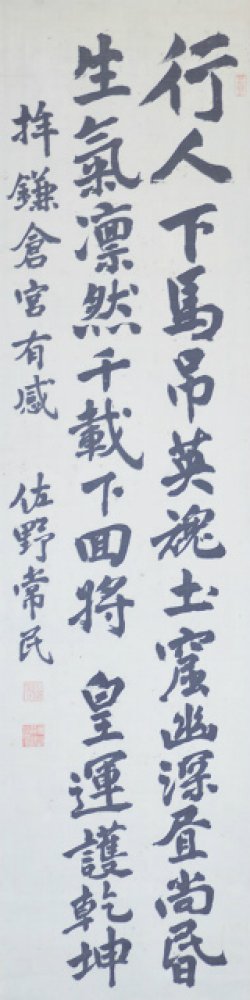 行人下馬吊英魂土窟幽深昼尚昏
生氣凛然千載下回將 皇運護乾坤
拜鎌倉宮有感 佐野常民